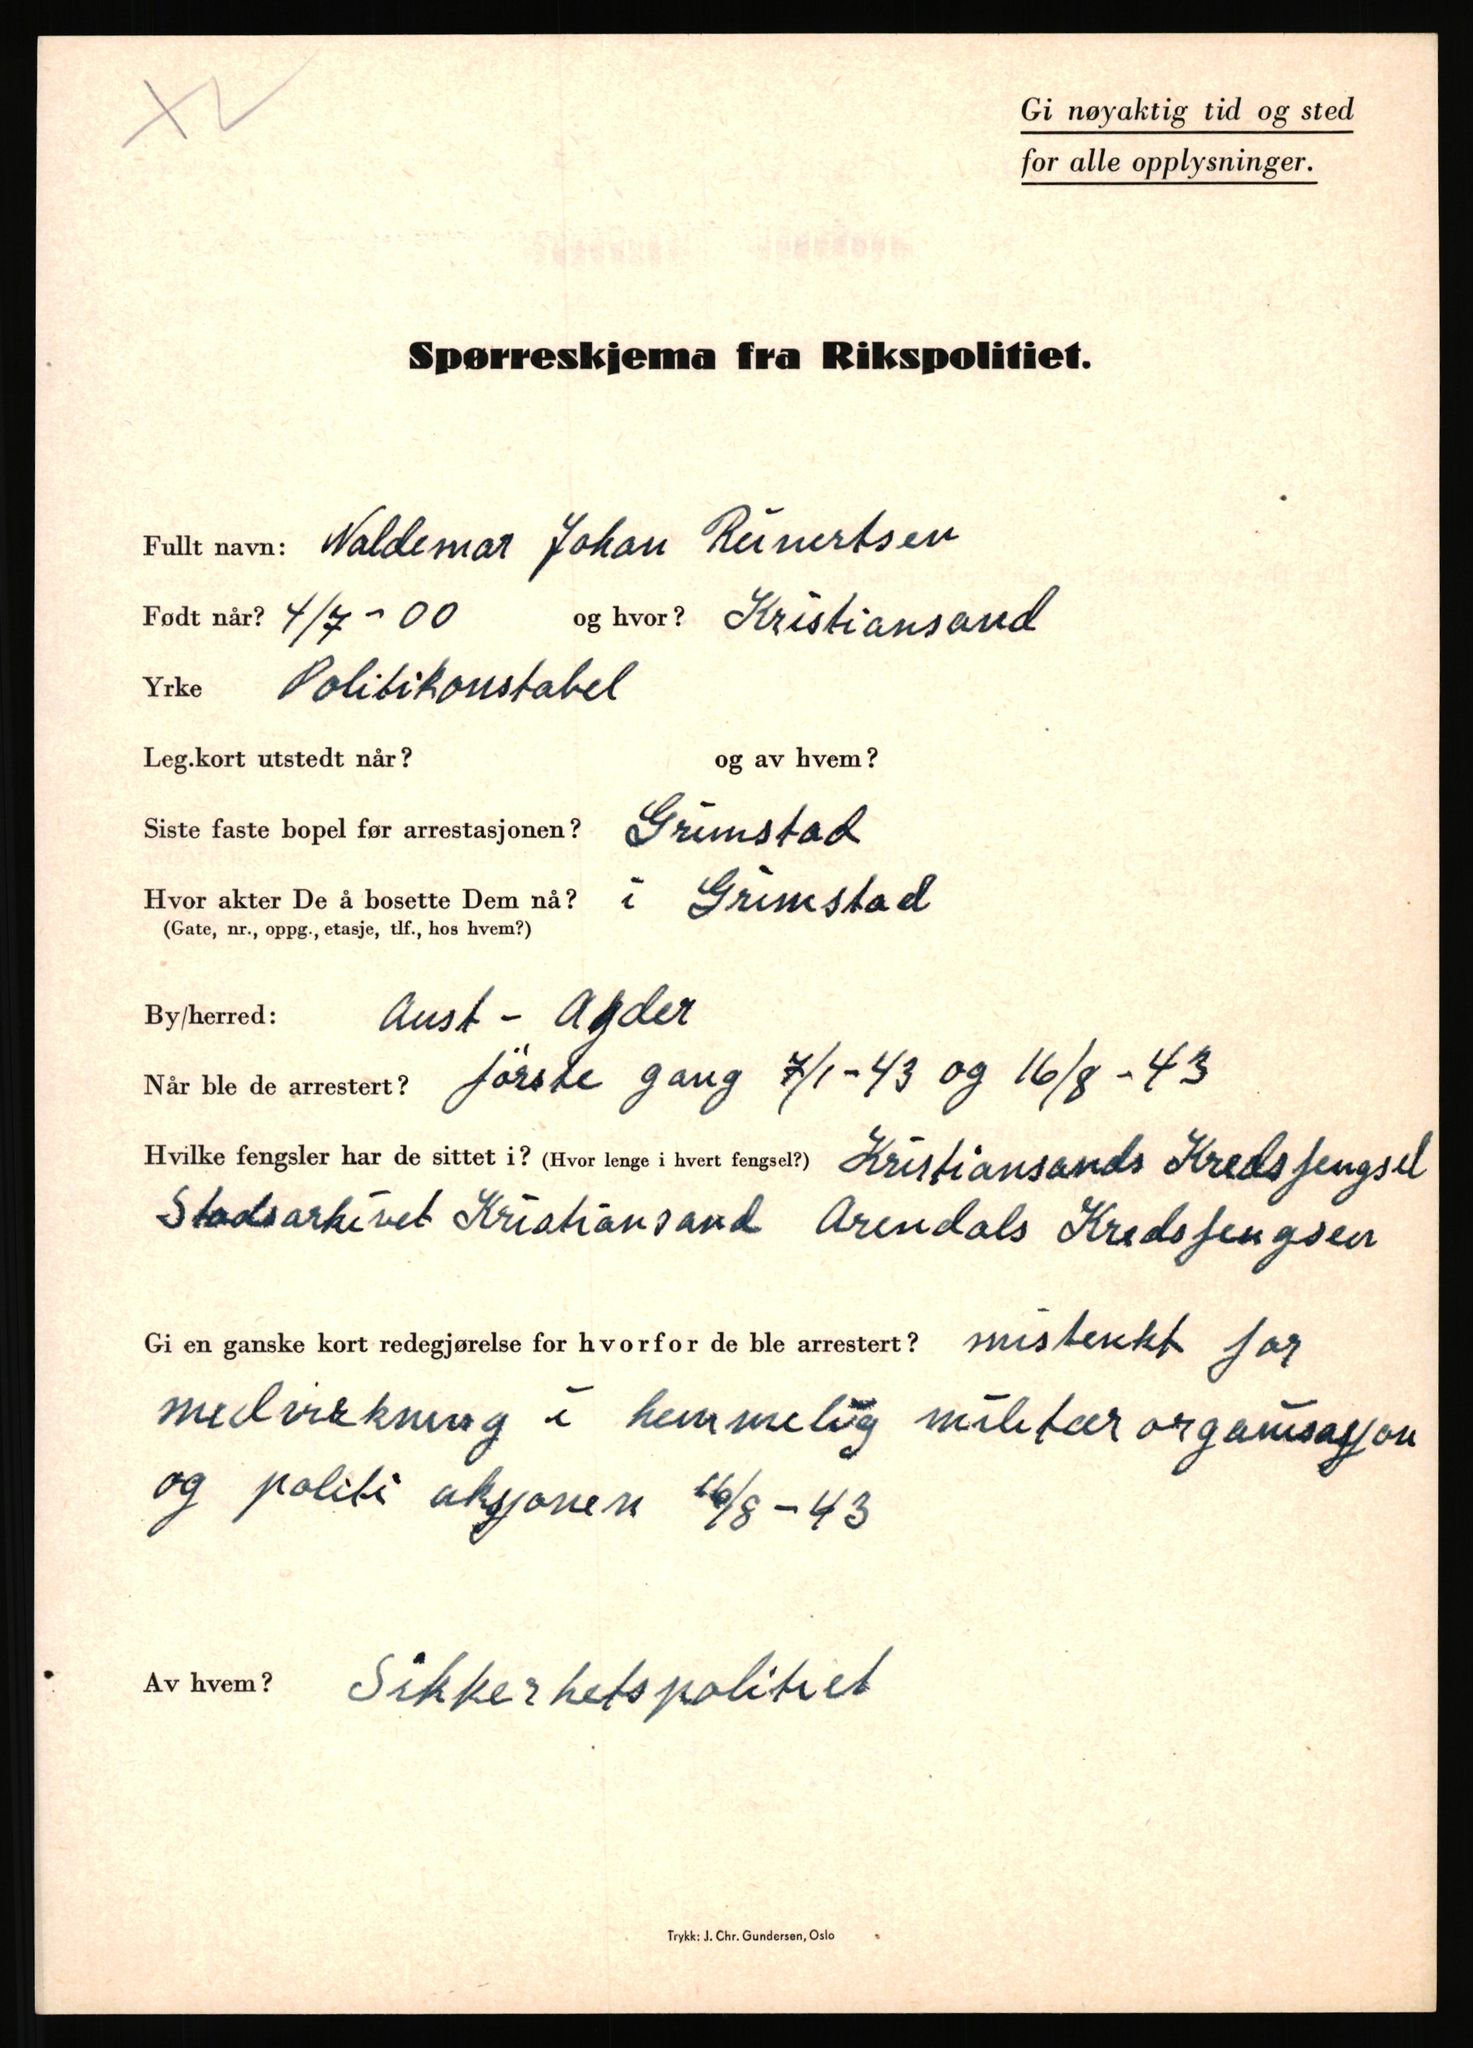 Gi nøyaktig tid og sted
for alle opplysninger.
Spørreskjema fra Rikspolitiet.
Fullt navn: Waldemar Johan Reinertsen
Født når? 4/7-00 og hvor? Kristiansand
Yrke Politikonstabel
Leg.kort utstedt når? og av hvem?
Siste faste bopel før arrestasjonen? Grimstad
Hvor akter De å bosette Dem nå? i Grimstad
(Gate, nr., oppg., etasje, tlf., hos hvem?)
By/herred: Aust-Agder
Når ble de arrestert? förste gang 7/1-43 og 16/8-43
Hvilke fengsler har de sittet i? (Hvor lenge i hvert fengsel?) Kristiansands Kredsfengsel
Stadsarkivet Kristiansand Arendals Kredsfengsen
Gi en ganske kort redegjørelse for hvorfor de ble arrestert? mistenkt for
medvirkning i hemmelig militær organisasjon
og politi aksjonen 16/8-43
Av hvem? Sikkerhetspolitiet
Trykk: J. Chr. Gundersen, Oslo